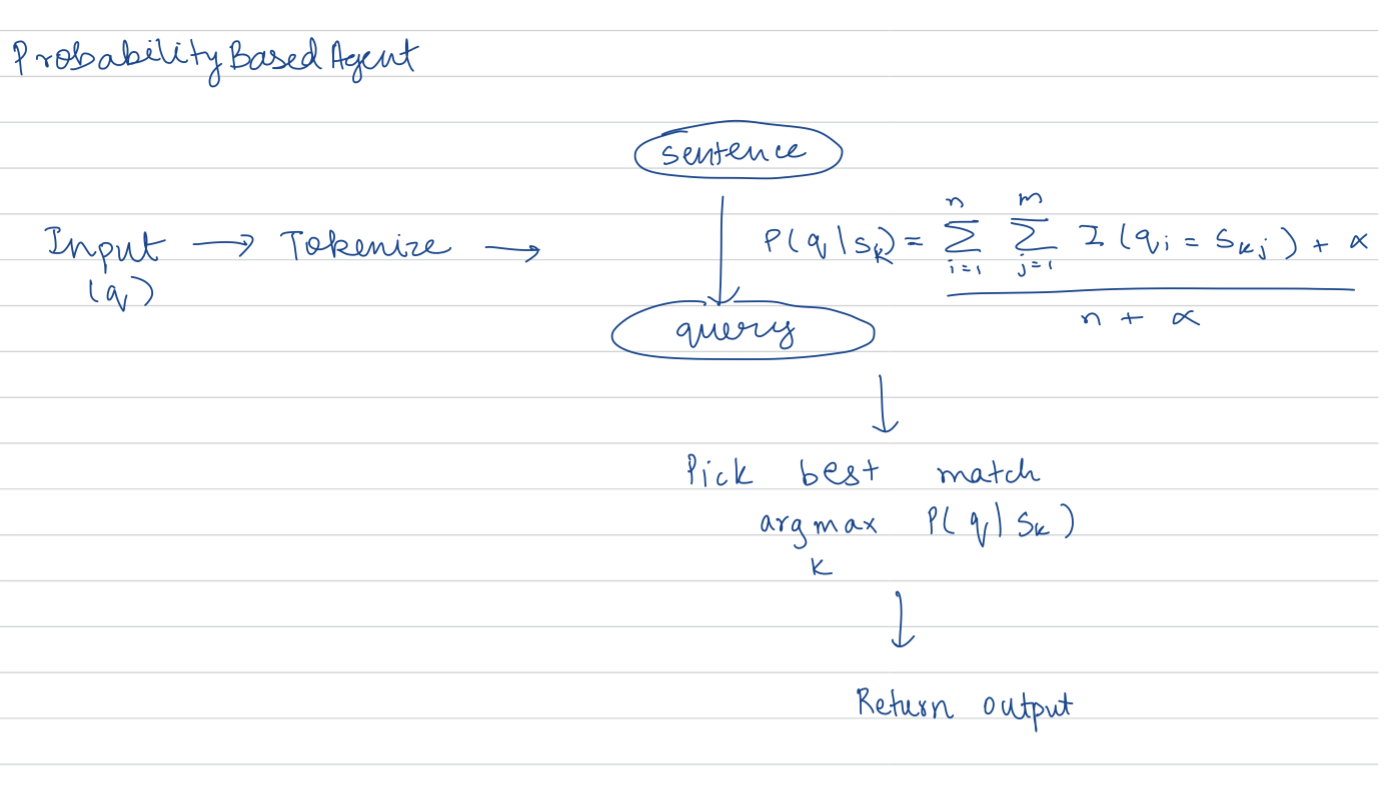 ProbabilityBasedAgent
sentence
Input → Tokenize →
(q)
P(q|sₖ) = ∑ⁿᵢ₌₁ ∑ᵐⱼ₌₁ I(qᵢ = Sₖⱼ) + α
n + α
query
Pick best match
argmax P(q|Sₖ)
k
Return output